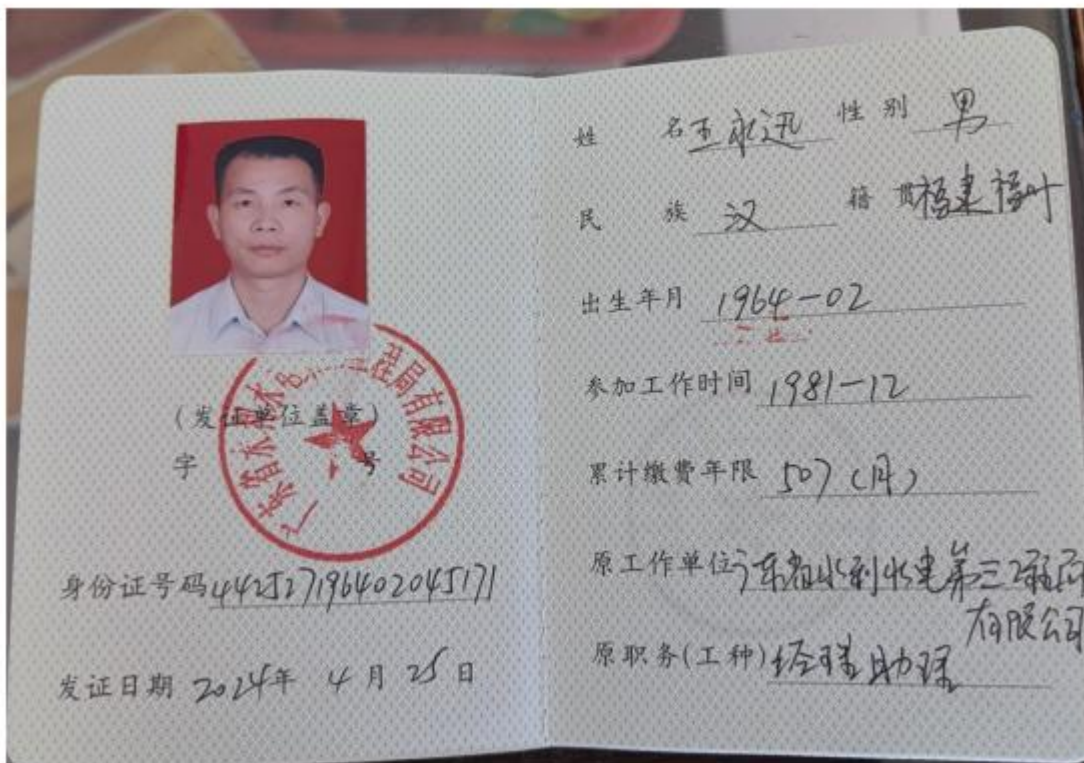 广东省水利水电第三工程局有限公司
(发证单位盖章)
字 号
身份证号码 442527196402045171
发证日期 2024年 4月 25日
姓 名 王永迅 性别 男
民 族 汉 籍 贯 福建福叶
出生年月 1964-02
参加工作时间 1981-12
累计缴费年限 507(月)
原工作单位 广东省水利水电第三工程局
有限公司
原职务(工种) 经理助理